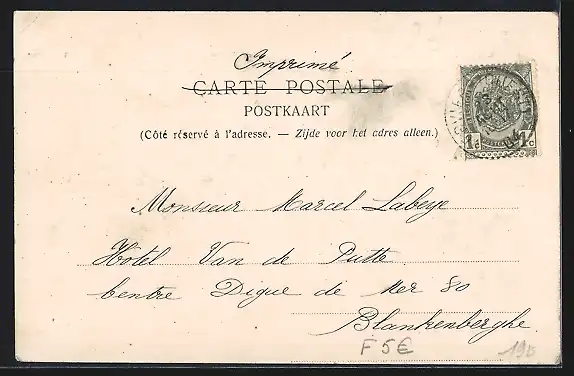 Imprimé
CARTE POSTALE
POSTKAART
(Côté réservé à l'adresse. — Zijde voor het adres alleen.)
1c 1c
Monsieur Marcel Labeye
Hotel Van de Putte
Centre Digue de Mer 80
Blankenberghe
F 5€